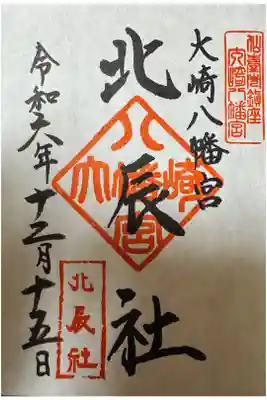 仙臺鎮座
大崎八幡宮
大崎八幡宮
北辰社
大崎八幡宮
北辰社
令和六年十二月十五日